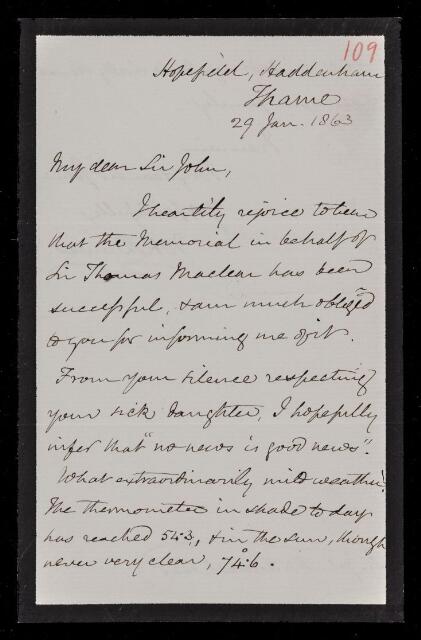 109
Hopefield, Haddenham
Thame
29 Jan. 1863
My dear Sir John,
I heartily rejoice to hear
that the Memorial in behalf of
Sir Thomas Maclear has been
successful, & am much obliged
to you for informing me of it.
From your silence respecting
your sick daughter, I hopefully
infer that "no news is good news".
What extraordinarily mild weather!
The thermometer in shade to day
has reached 54.3, & in the sun, though
never very clear, 74°.6.